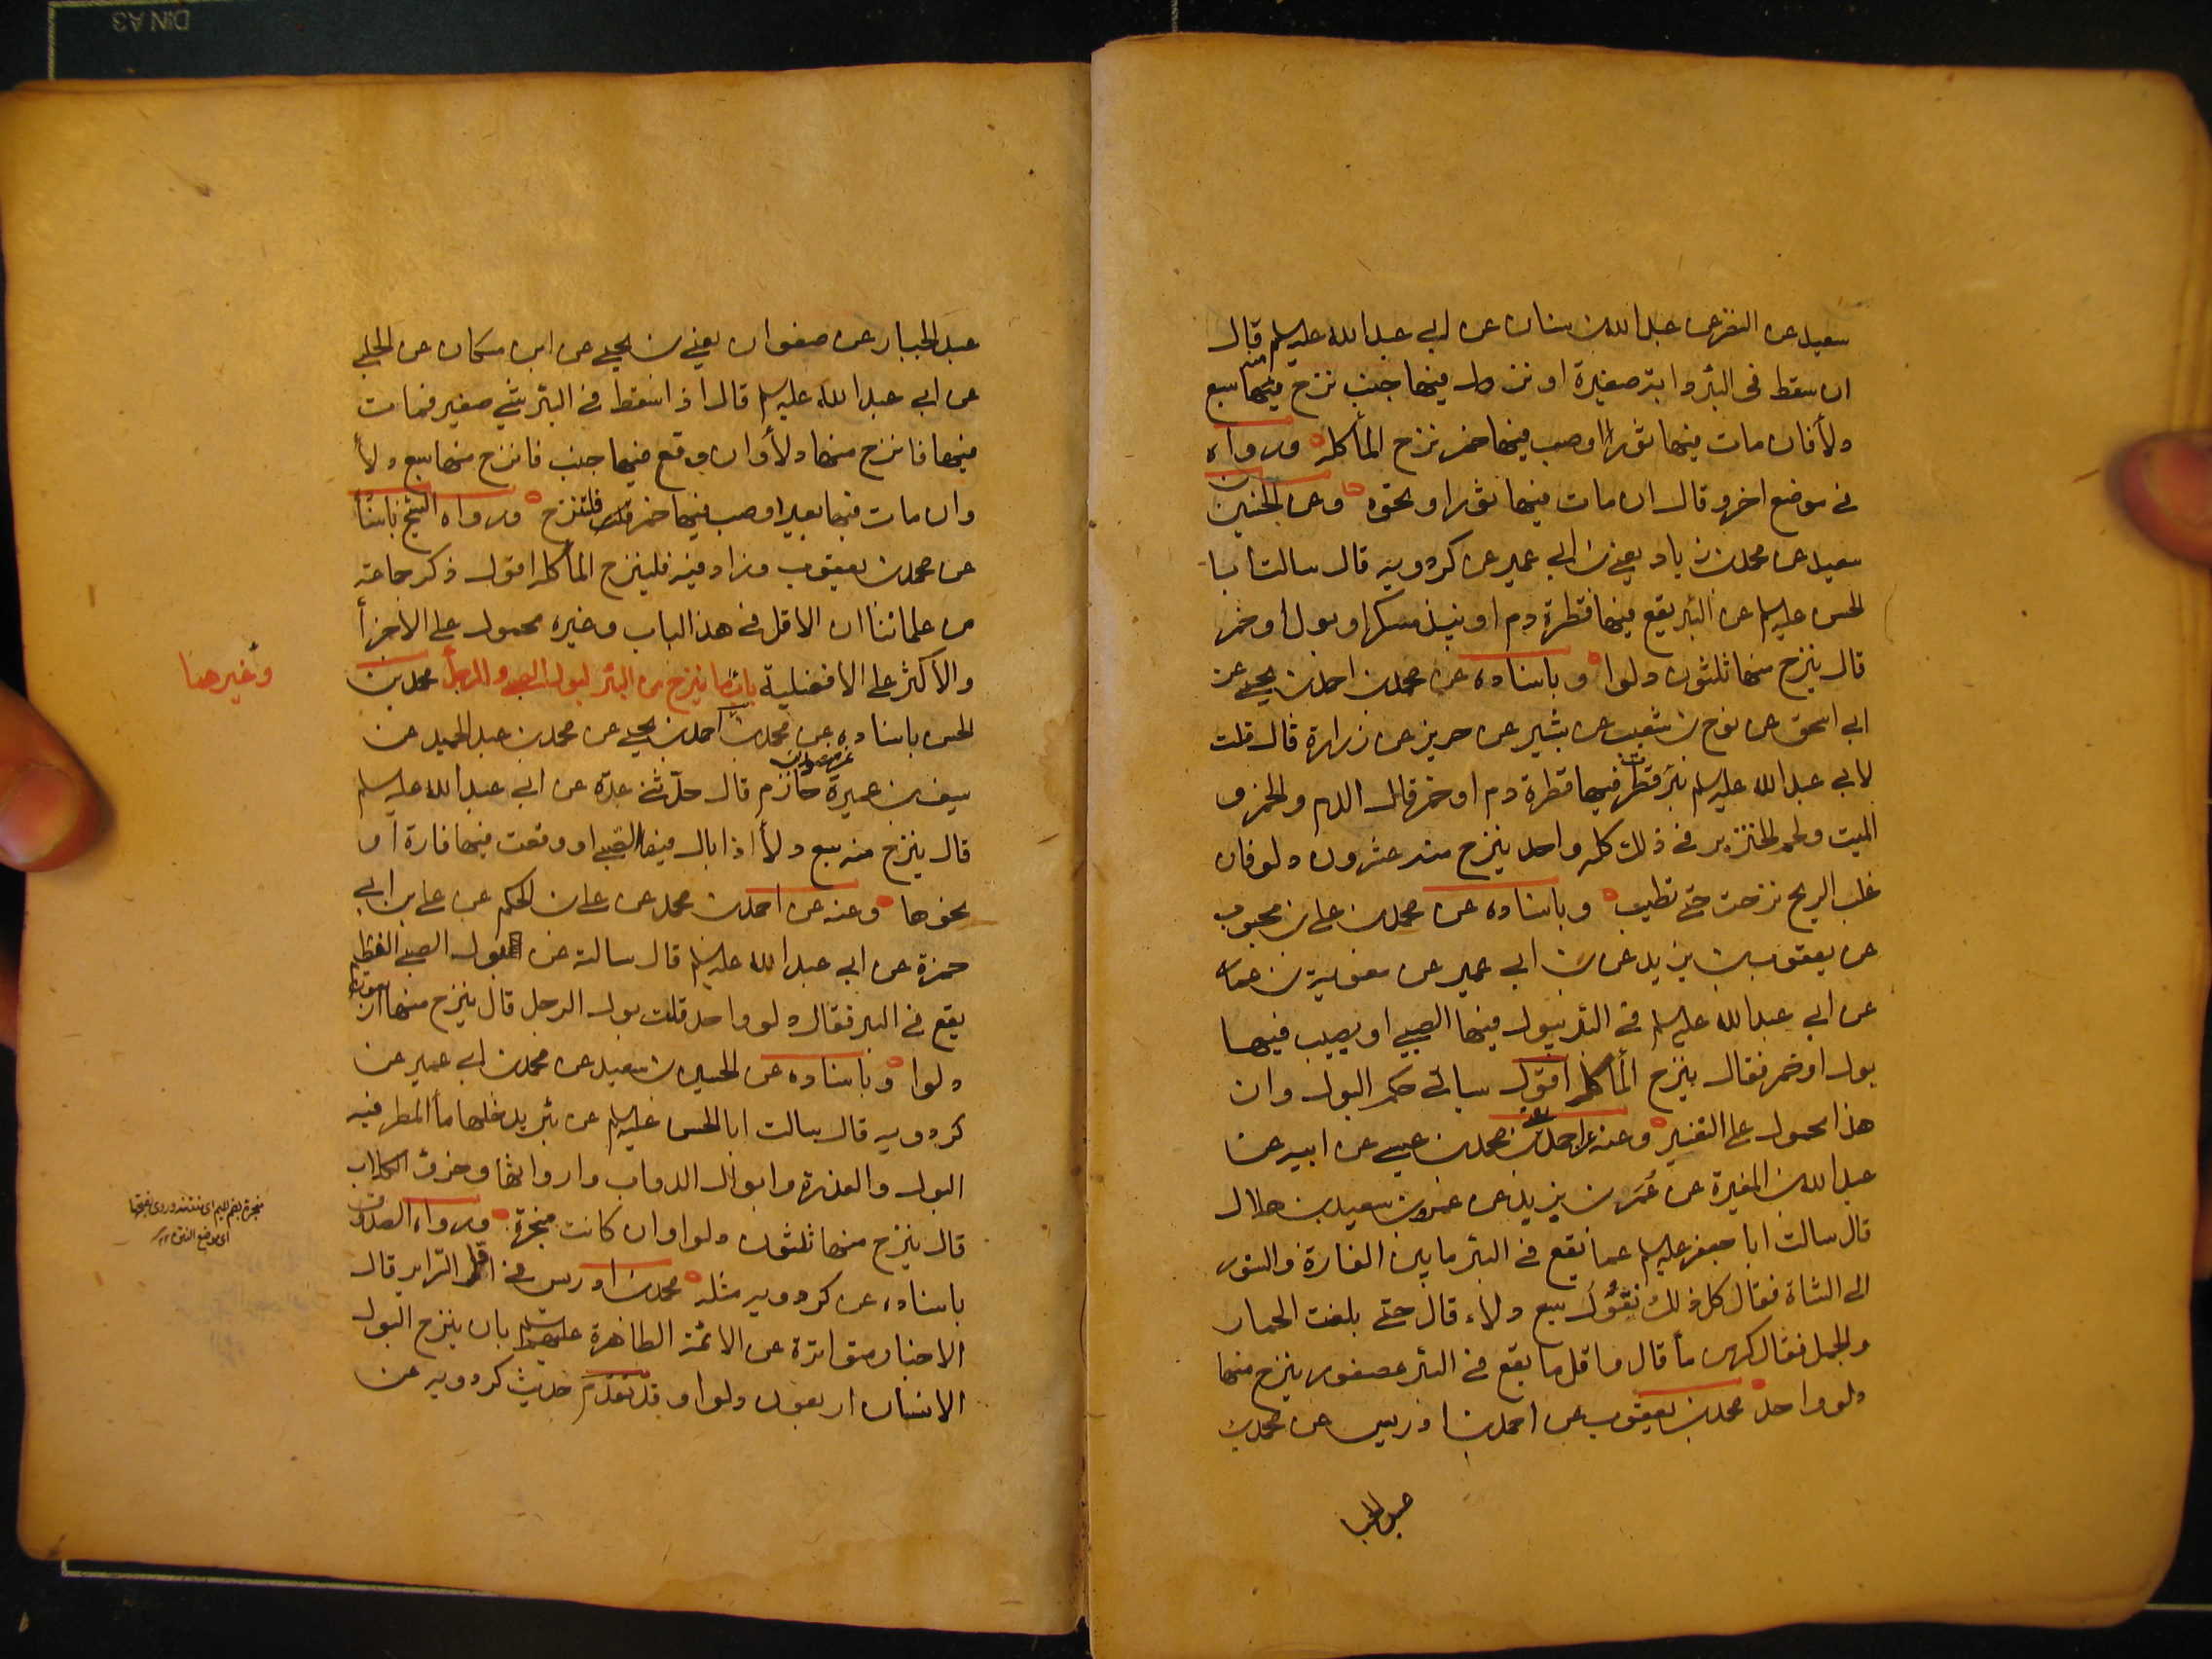 سعيد عن النضر عن عبدالله بن سنان عن ابي عبدالله عليه السلم قال
ان سقط فى البئر دابة صغيرة او نزل فيها جنب نزح منها سبع
دلاء فان مات فيها ثور او صب فيها خمر نزح الماء كله ورواه
فى موضع اخر وقال ان مات فيها ثور او نحوه وعن الحسين بن
سعيد عن محمد بن زياد يعنى بن ابي عمير عن كردويه قال سالت ابا
الحسن عليه السلم عن البئر يقع فيها قطرة دم او نبيذ مسكر او بول او خمر
قال ينزح منها ثلثون دلوا وباسناده عن محمد بن احمد بن يحيى عن
ابي اسحق عن نوح بن شعيب عن بشير عن حريز عن زرارة قال قلت
لابي عبدالله عليه السلم بئر قطرت فيها قطرة دم او خمر قال الدم والخمر و
الميت ولحم الخنزير فى ذلك كله واحد ينزح منه عشرون دلو فان
غلب الريح نزحت حتى تطيب وباسناده عن محمد بن على بن محبوب
عن يعقوب بن يزيد عن بن ابي عمير عن معوية بن عمار
عن ابي عبدالله عليه السلم فى البئر يبول فيها الصبي او يصيب فيها
بول او خمر فقال ينزح الماء كله اقول سياتى حكم البول وان
هذا محمول على التغير وعنه عن احمد بن محمد بن عيسى عن ابيه عن
عبدالله بن المغيرة عن عمر بن يزيد عن عمرو بن سعيد بن هلال
قال سالت ابا جعفر عليه السلم عما يقع فى البئر ما بين الفارة والسنور
الى الشاة فقال كل ذلك نقول سبع دلاء قال حتى بلغت الحمار
والجمل فقال كر من ماء قال واقل ما يقع فى البئر عصفور ينزح منها
دلو واحد محمد بن يعقوب عن احمد بن ادريس عن محمد بن
عبد الجبا
عبد الجبار عن صفوان يعنى بن يحيى عن ابن مسكان عن الحلبي
عن ابي عبدالله عليه السلم قال اذا سقط فى البئر شيء صغير فمات
فيها فانزح منها دلاء وان وقع فيها جنب فانزح منها سبع دلاء
وان مات فيها بعير او صب فيها خمر فلتنزح ورواه الشيخ باسناده
عن محمد بن يعقوب وزاد فيه فلينزح الماء كله اقول ذكر جماعة
من علمائنا ان الاقل فى هذا الباب وغيره محمول على الاجزاء
والاكثر على الافضلية باب ما ينزح من البئر لبول الصبي والرجل محمد بن
وغيرهما
الحسن باسناده عن محمد بن احمد بن يحيى عن محمد بن عبد الحميد عن
سيف بن عميرة عن منصور بن حازم قال حدثنى عدة عن ابي عبدالله عليه السلم
قال ينزح منه سبع دلاء اذا بال فيها الصبي او وقعت فيها فارة او
نحوها وعنه عن احمد بن محمد عن على بن الحكم عن على بن ابي
حمزة عن ابي عبدالله عليه السلم قال سالته عن بول الصبي الفطيم
يقع فى البئر فقال دلو واحد قلت بول الرجل قال ينزح منها اربعون
دلوا وباسناده عن الحسين بن سعيد عن محمد بن ابي عمير عن
كردويه قال سالت ابا الحسن عليه السلم عن بئر يدخلها ماء المطر فيه
البول والعذرة وابوال الدواب وارواثها وخرؤ الكلاب
قال ينزح منها ثلثون دلوا وان كانت مبخرة ورواه الصدوق
مبخرة بضم الميم اى منتنة وروى بفتحها
اى موضع النتن
باسناده عن كردويه مثله محمد بن ادريس فى اول السراير قال
الاخبار متواترة عن الائمة الطاهرة عليهم السلم بان ينزح لبول
الانسان اربعون دلوا وقد تقدم حديث كردويه عن